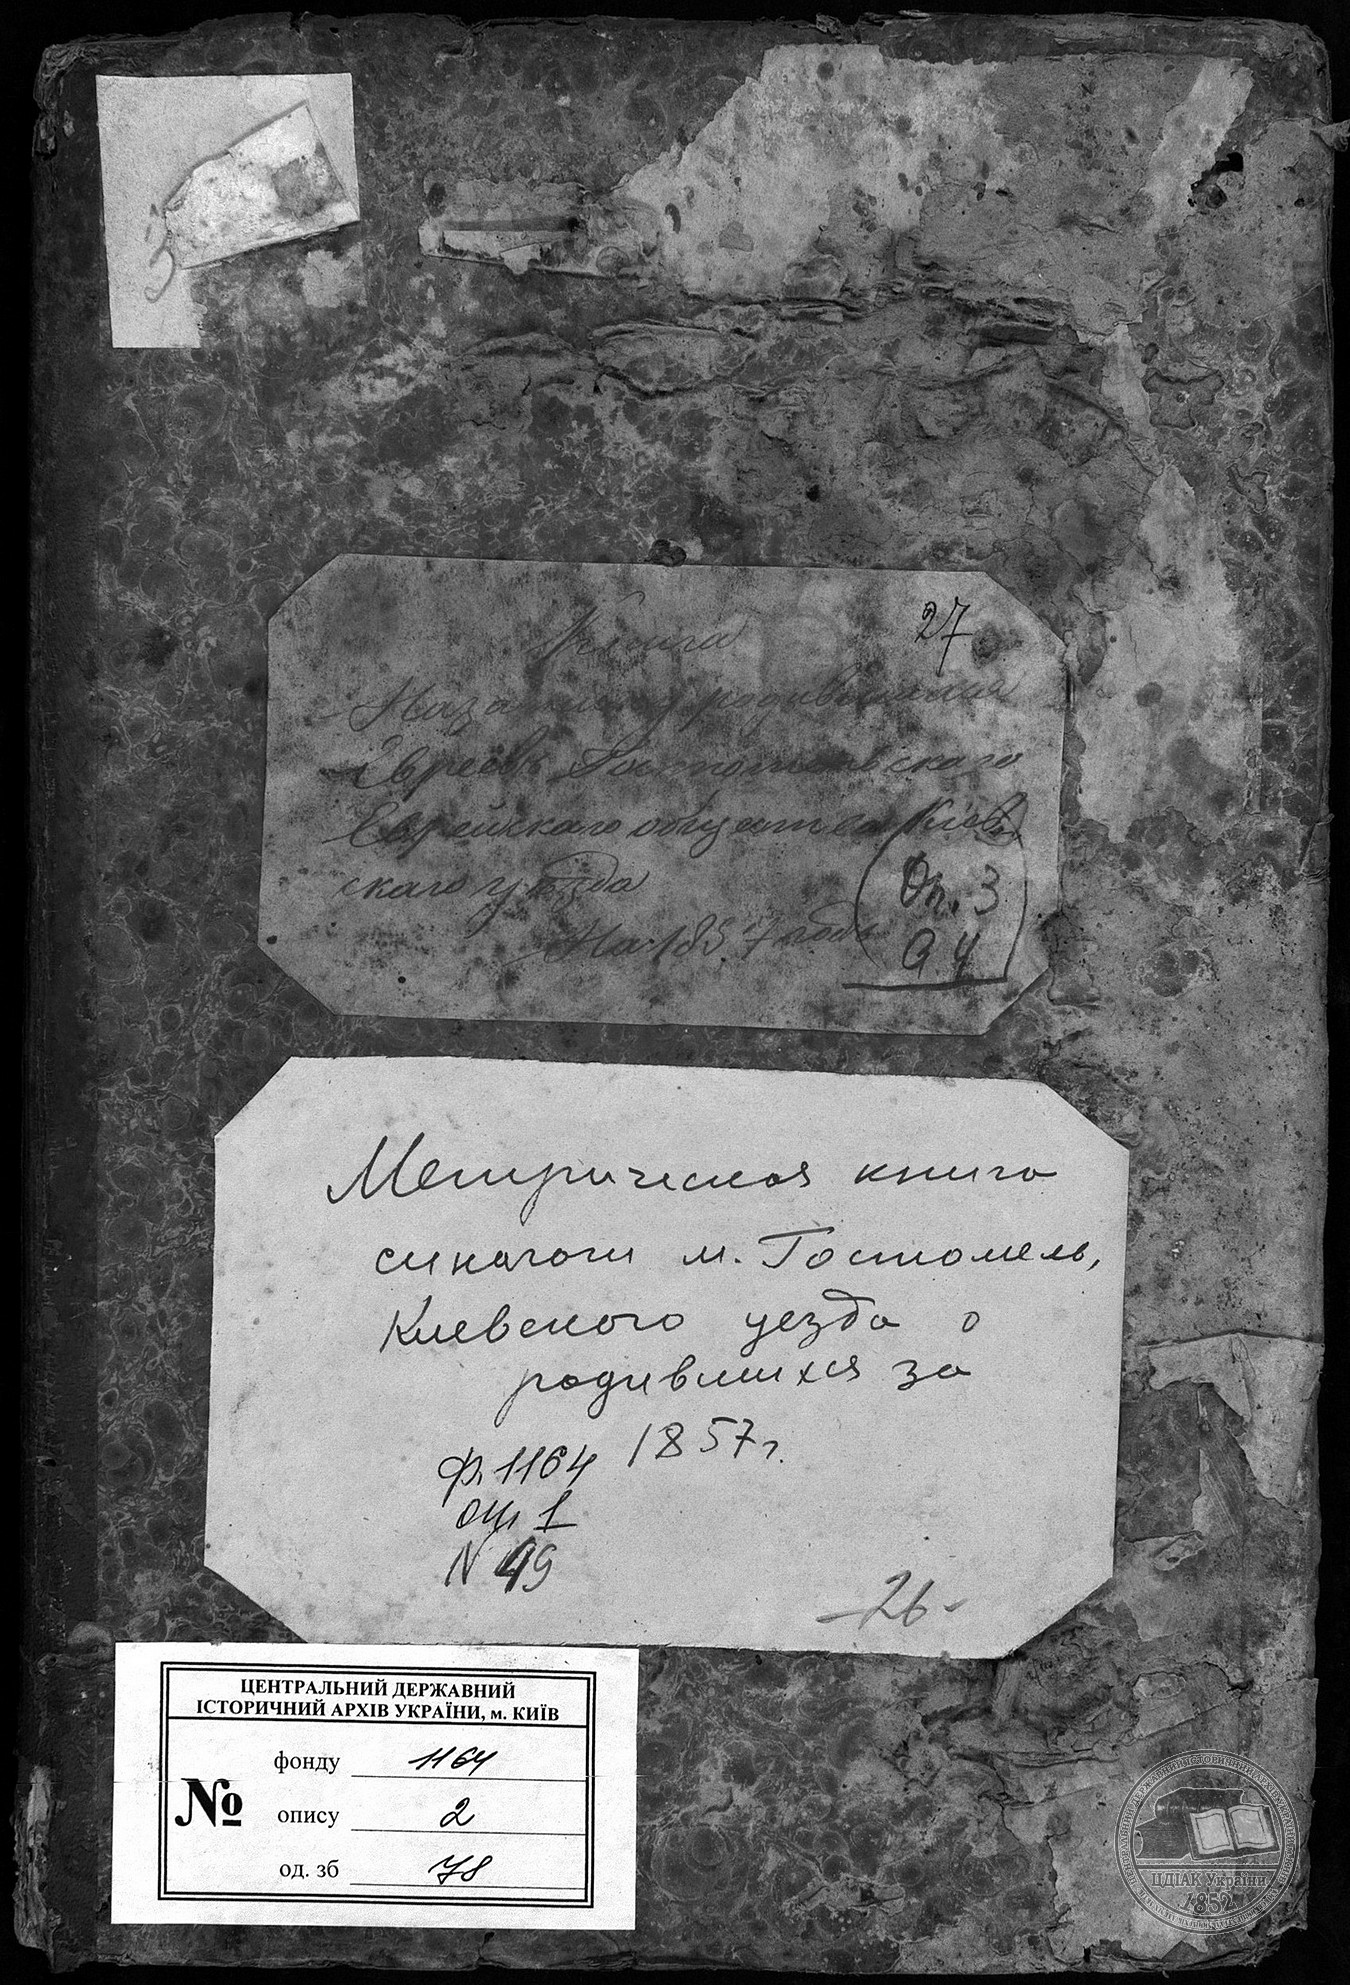 3
27
Книга
На записку родившихся
Евреевъ Гостомельского
Еврейскаго общества Кіев
скаго уѣзда
На 1857 годъ
Оп. 3
Метрическая книга
синагоги м. Гостомель,
Киевского уезда о
родившихся за
1857 г.
ф. 1164
оп. 1
N 49
-26-
ЦЕНТРАЛЬНИЙ ДЕРЖАВНИЙ
ІСТОРИЧНИЙ АРХІВ УКРАЇНИ, м. КИЇВ
№
фонду 1164
опису 2
од. зб 78
ЦДІАК України
1852